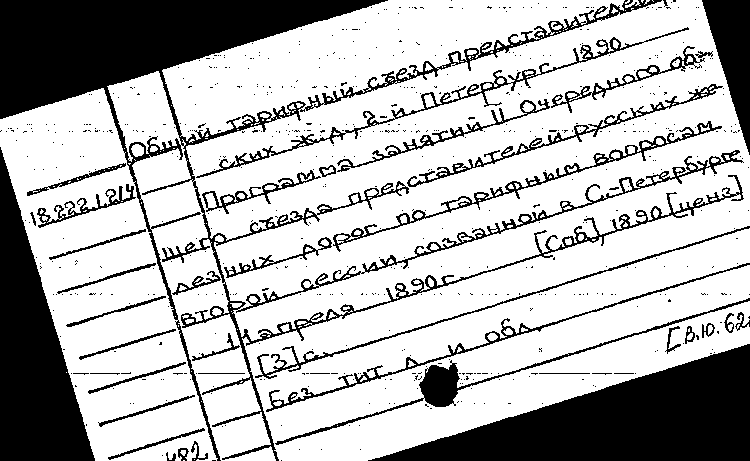 Общий тарифный съезд представителей
ских ж.д., 2-й. Петербург. 1890.
Программа занятий II Очередного об-
щего съезда представителей русских же
18.222.1.214
лезных дорог по тарифным вопросам
второй сессии, созванной в С.-Петербурге
... 11 апреля 1890 г. [Спб], 1890 [ценз]
[3] с.
Без тит. л. и обл.
[В.10.62
482